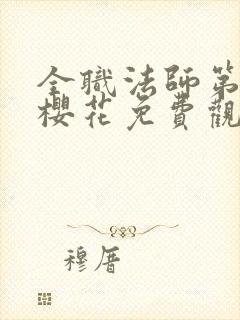 全職法師第
櫻花免費觀
穆厝